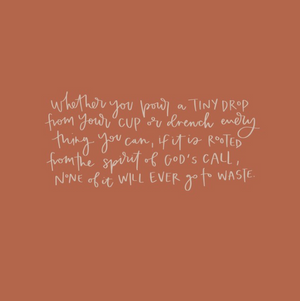 Whether you pour a TINY DROP
from your CUP or drench every
thing you can, if it is ROOTED
from the spirit of GOD'S CALL,
NONE of it WILL EVER go to WASTE.